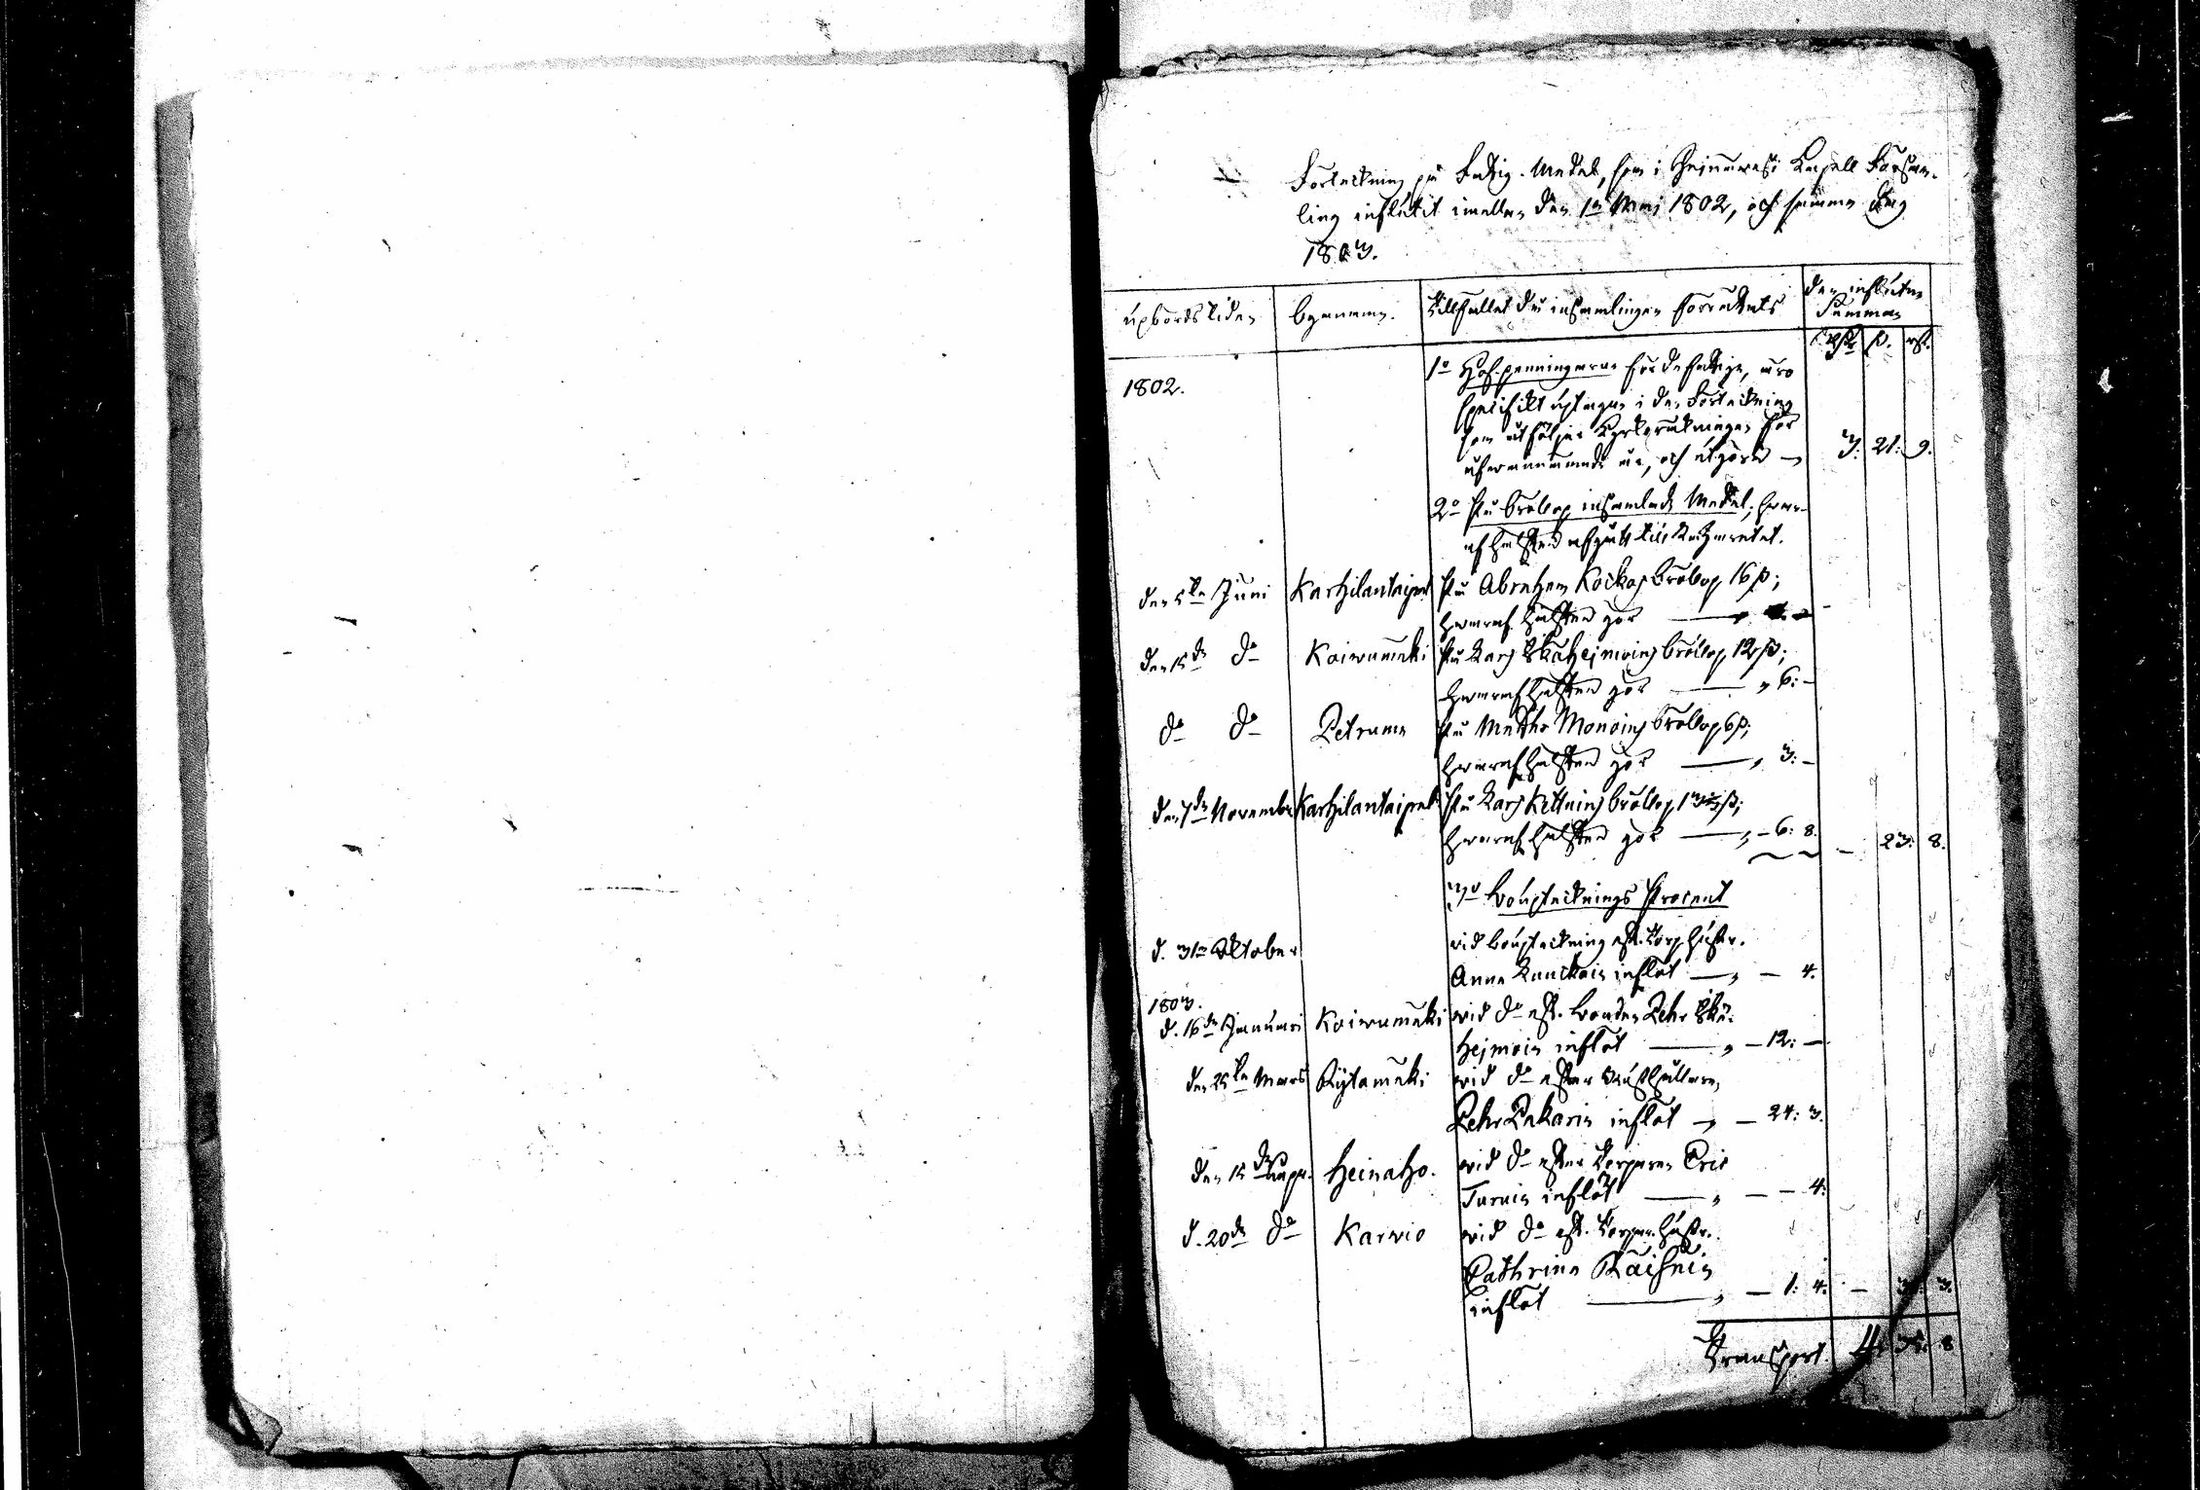 Förteckning på Fattig-Medel, som i Heinäwesi Capell Försam-
ling influtit imellan den 1a Maj 1802, och samma dag
1803.
upbördstiden
Bynamn.
Tillfället då insamlingen förrättats
den influtna
Summan
1802.
1o Håfpenningarne för de fattige, äro
specifikt uptagne i den Förteckning
som åtföljer Kyrkoräkningen för
ofwannämnde år, och utgöra 3: 21: 9.
2o På bröllop insamlade Medel, hwar-
af hälften afgått till Lazarettet.
den 5te Juni Karhilantaipal På Abraham Koikas bröllop 16 ß;
hwaraf hälften gör
den 15de do Koiwumäki På Lars Skåhejmoins bröllop 12 ß;
hwaraf hälften gör „ 6: –
do do Petruma På Matts Monoins bröllop 6 ß;
hwaraf hälften gör „ 3: –
den 7de November Karhilantaipal På Lars Kettuins bröllop 13 ß;
hwaraf hälften gör „ – 6: 8. – 23: 8.
3o Bouptecknings Procent
d. 31a Oktober wid bouptekning eft. Torp.hustr.
Anna Lauckain inflöt „ – 4.
1803.
d. 16de Januari Koiwumäki wid do eft. bonden Pehr Skå-
hejmoin inflöt „ – 12: –
den 25te Mars Rytämäki wid do efter Rusthållaren
Pehr Pakarin inflöt „ – 24: 3.
den 15de Heinaho. wid do efter Torparen Eric
Turuin inflöt „ – – 4:
d. 20de do Karwio wid do eft. Torpar.hustr.
Cathrina Räisäin
inflöt „ – 1: 4. – 3.
Transport. 8